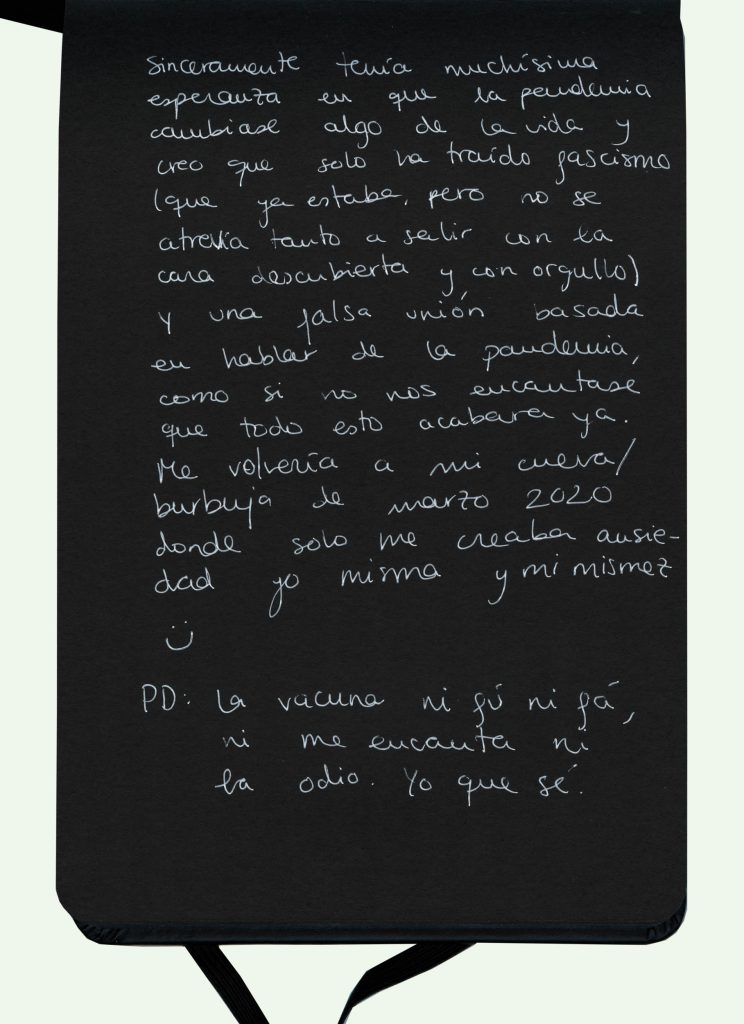 Sinceramente tenía muchísima
esperanza en que la pandemia
cambiase algo de la vida y
creo que solo ha traído fascismo
(que ya estaba, pero no se
atrevía tanto a salir con la
cara descubierta y con orgullo)
y una falsa unión basada
en hablar de la pandemia,
como si no nos encantase
que todo esto acabara ya.
Me volvería a mi cueva/
burbuja de marzo 2020
donde solo me creaba ansie-
dad yo misma y mi mismez
:)
PD: La vacuna ni fú ni fá,
ni me encanta ni
la odio. Yo que sé.